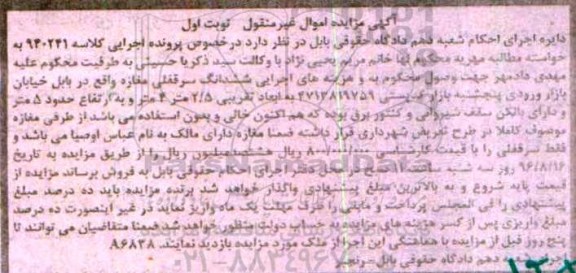 آگهی مزایده اموال غیرمنقول نوبت اول
دایره اجرای احکام شعبه دهم دادگاه حقوقی بابل در نظر دارد در خصوص پرونده اجرایی کلاسه ۹۴۰۲۴۱ به
خواسته مطالبه مهریه محکوم لها خانم مریم یحیی نژاد با وکالت سید ذکریا حسینی به طرفیت محکوم علیه
مهدی دادمهر جهت وصول محکوم به و هزینه های اجرایی ششدانگ سرقفلی مغازه واقع در بابل خیابان
بازار ورودی پنجشنبه بازار ۴۷۱۳۸۱۹۷۵۹ به ابعاد تقریبی ۲/۵ متر ۴ متر و به ارتفاع حدود ۵ متر
و دارای بالکن سقف شیروانی و کنتور برق بوده که هم اکنون خالی و بدون استفاده می باشد از طرفی مغازه
موصوف کاملا در طرح تعریض شهرداری قرار داشته ضمنا مغازه دارای مالک به نام عباس اوصیا می باشد و
فقط سرقفلی را با قیمت ۸۰۰/۰۰۰/۰۰۰ ریال هشتصد میلیون ریال را از طریق مزایده به تاریخ
۹۶/۸/۱۶ روز سه شنبه ساعت صبح در محل دفتر اجرای احکام حقوقی بابل به فروش برساند مزایده از
قیمت پایه شروع و به بالاترین مبلغ پیشنهادی واگذار خواهد شد برنده مزایده باید ده درصد مبلغ
پیشنهادی را فی المجلس پرداخت و مابقی را ظرف مهلت یک ماه واریز نماید در غیر اینصورت ده درصد
مبلغ واریزی پس از کسر هزینه های مزایده به حساب دولت منظور خواهد شد ضمنا متقاضیان می توانند تا
پنج روز قبل از مزایده با هماهنگی این اجرا از ملک مورد مزایده بازدید نمایند. ۹۶۸۳۸.A
شعبه دهم دادگاه حقوقی بابل